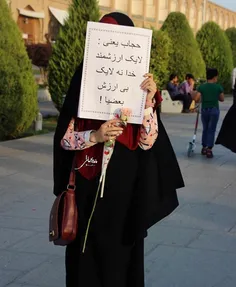 حجاب یعنی :
لایک ارزشمند
خدا نه لایک
بی ارزش
بعضیا !